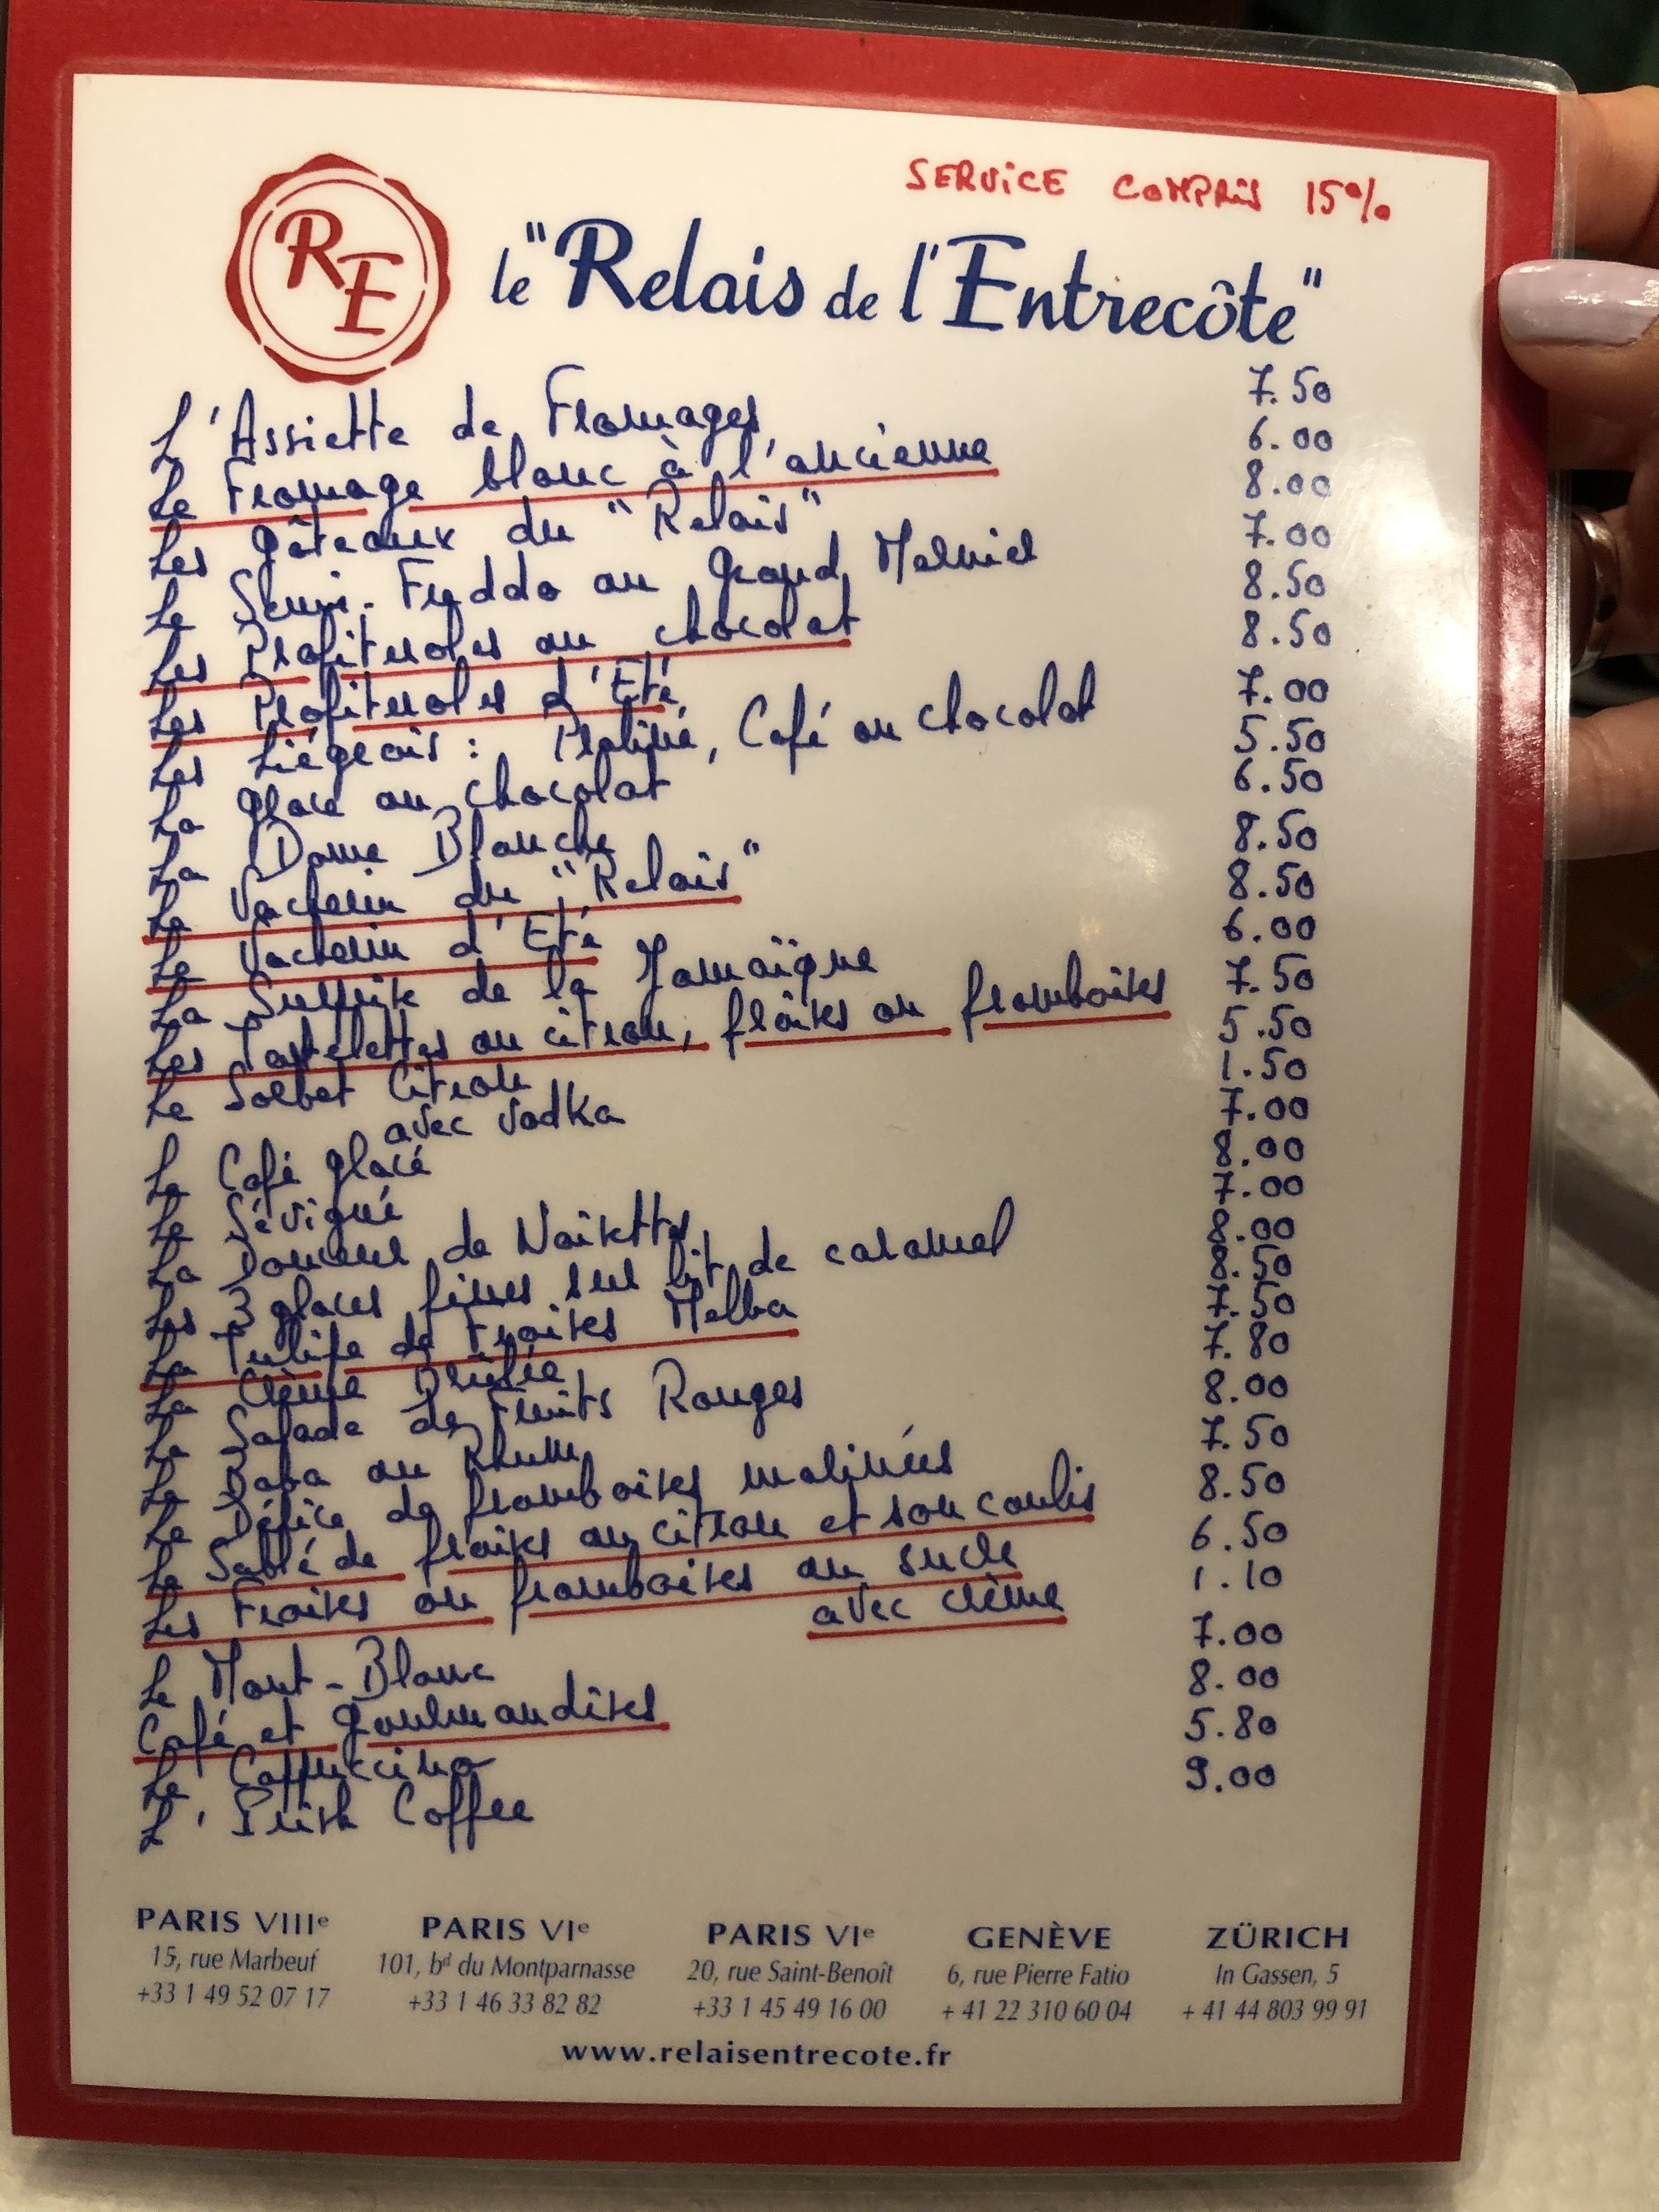 SERVICE COMPRIS 15%
RE
le "Relais de l'Entrecôte"
L'Assiette de Fromages 7.50
Le Fromage blanc à l'ancienne 6.00
Les gâteaux du "Relais" 8.00
Le Semi-Freddo au Grand Marnier 7.00
Les Profiteroles au chocolat 8.50
Les Profiteroles d'Eté 8.50
Les Liégeois : Praliné, Café ou chocolat 7.00
La glace au chocolat 5.50
La Dame Blanche 6.50
Le Vacherin du "Relais" 8.50
Le Vacherin d'Eté 8.50
La Surprise de la Jamaïque 6.00
Les Tartelettes au citron, fraises ou framboises 7.50
Le Sorbet Citron 5.50
avec Vodka 1.50
Le Café glacé 7.00
Le Sévigné 8.00
La Douceur de Noisettes 7.00
Les 3 glaces fines sur lit de caramel 8.00
La Tulipe de Fraises Melba 8.50
La Crème Brûlée 7.50
La Salade de Fruits Rouges 7.80
Le Baba au Rhum 8.00
Le Délice de framboises malinées 7.50
Le Sablé de fraises au citron et son coulis 8.50
Les Fraises ou framboises au sucre 6.50
avec crème 1.10
Le Mont-Blanc 7.00
Café et gourmandises 8.00
Le Cappuccino 5.80
L'Irish Coffee 9.00
PARIS VIIIe PARIS VIe PARIS VIe GENÈVE ZÜRICH
15, rue Marbeuf 101, bd du Montparnasse 20, rue Saint-Benoît 6, rue Pierre Fatio In Gassen, 5
+33 1 49 52 07 17 +33 1 46 33 82 82 +33 1 45 49 16 00 + 41 22 310 60 04 + 41 44 803 99 91
www.relaisentrecote.fr